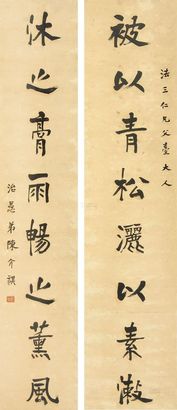 法三仁兄父臺大人
被以青松灑以素
沐之膏雨暢之薰風
治愚弟陳介祺